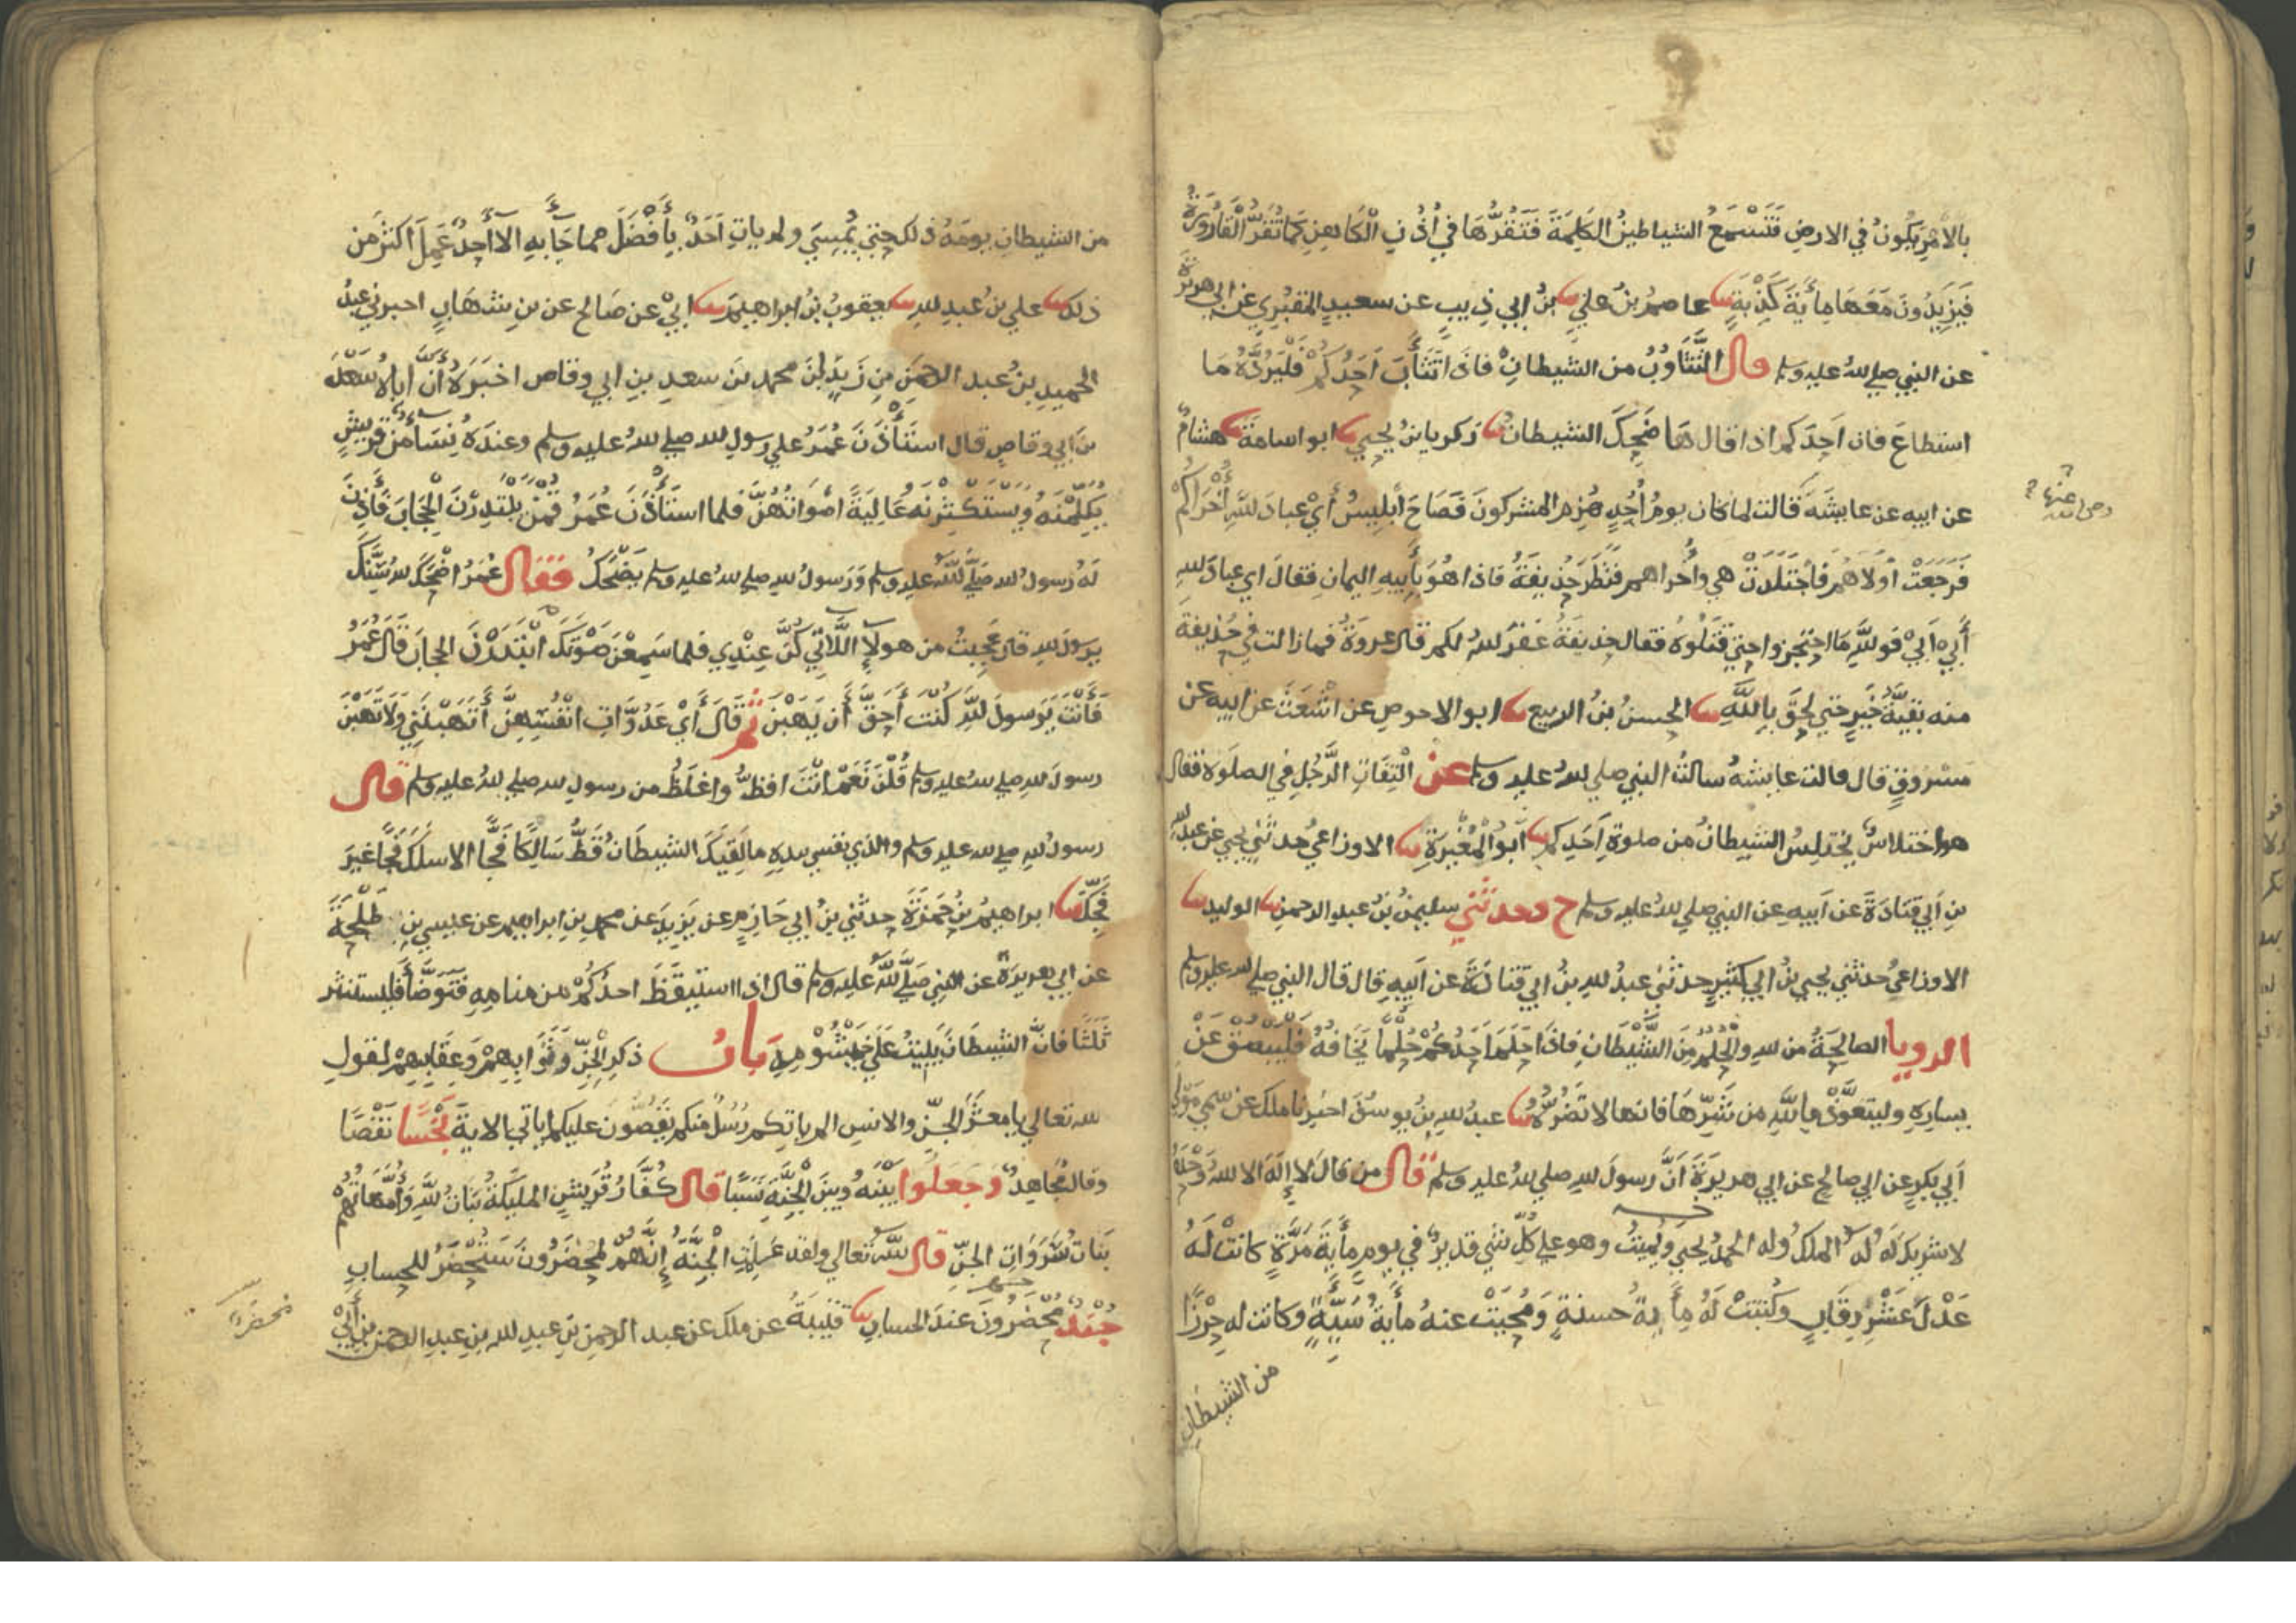 بالأَمْرِ يَكُونُ في الارضِ فَتَسْمَعُ الشياطينُ الكَلِمَةَ فَتَقُرُّهَا في أُذُنِ الْكَاهِنِ كَمَا تُقَرُّ الْقَارُورَةُ
فَيَزِيدُونَ مَعَهَا مِأيَةَ كَذْبَةٍ عاصمُ بنُ عليٍ بنُ ابي ذيبٍ عن سعيدٍ المَقْبُرِي عن ابي هريرة
عن النبي صلي لله عليه وسلم قال التَّثَاوُبُ من الشيطانِ فاذا تَثَأَبَ اَحَدُكُمْ فَلْيَرُدَّهُ مَا
استطاعَ فان احدَكم اذا قال هَا ضَحِكَ الشيطانُ زكريا بنُ يحيي ابو اسامةَ هشامٌ
عن ابيه عن عايشَةَ قالت لما كان يومُ اُحُدٍ هُزِمَ المشركونَ فَصَاحَ اِبْلِيسُ أَيْ عبادَ للهِ أُخْرَاكُمْ
فَرَجَعَتْ اُولَاهُمْ فَاجْتَلَدَتْ هي وأُخراهم فَنَظَرَ حُذيفةُ فاذا هُوَ بِأَبِيهِ اليمانِ فقالَ اي عبادَ للهِ
أَبِيْ أَبِيْ فوللّٰهِ مَا احْتَجَزوا حتي قَتَلُوهُ فقال حذيفةُ غفرَ للهُ لكم قال عروةُ فما زالت في حُذيفةَ
منه بقيَّةُ خَيْرٍ حتي لَحِقَ بِاللَّهِ الحسنُ بنُ الربيع ابو الاحوصِ عن اشْعَثَ عن ابيه عن
مسْروقٍ قال قالت عايشةُ سالتُ النبي صلي لله عليه وسلم عن الْتِفَاتِ الرَّجُلِ في الصلوة فقال
هو اختلاسٌ يختلِسُ الشيطانُ من صلوةِ اَحَدِكم أبُو الْمُغِيرَةِ الاوزاعيُ حدثني يحيي عن عبد لله
بنِ أبي قتادَةَ عن اَبيهِ عن النبي صلي للهُ عليه وسلم ح وحدثني سليمنُ بنُ عبدِ الرحمنِ الوليدُ
الاوزاعيُ حدثني يحيي بنُ ابي كثيرٍ حدثني عبدُ للهِ بنُ ابي قتادَةَ عن اَبيهِ قال قال النبي صلي لله عليه وسلم
الرويا الصالحةُ من للهِ والْحُلُمُ مِنَ الشَّيْطَانِ فاذَا حَلَمَ اَحَدُكُمْ حُلْمًا يَخَافُهُ فَلْيَبْصُقْ عَنْ
يسارِهِ وليتعوَّذْ بِاللّٰهِ من شَرِّهَا فانها لا تَضُرُّهُ عبدُ للهِ بنُ يوسُفَ اخبرنا ملك عن سُمي مَوْلي
اَبي بكرٍ عن ابي صالحٍ عن ابي هريرَةَ اَنَّ رسولَ للهِ صلي للهُ عليه وسلم قال من قالَ لا إلٰهَ الا للهُ وَحْدَهُ
لا شريكَ لَهُ لهُ الملكُ وله الحمدُ يُحيي ويُميتُ وهو علي كُلِّ شيءٍ قديرٌ في يومٍ مِأيةَ مَرَّةٍ كانتْ لَهُ
عَدْلَ عَشْرِ رِقَابٍ وكُتبتْ لَهُ مِأيةُ حسنةٍ وَمُحِيَتْ عنهُ مأيةُ سَيِّئَةٍ وكانت له حِرْزًا
من الشيطانِ
من الشيطانِ يومَهُ ذلك حتي يُمْسِيَ ولم ياتِ اَحَدٌ بِأَفْضَلَ مما جَاءَ بِهِ الا أَحَدٌ عَمِلَ اكثرَ من
ذلك علي بنُ عبدِ للهِ يعقوبُ بنُ ابراهيمَ ابِيْ عن صَالح عن بنِ شهَابٍ اخبرني عبدُ
الحميدِ بنُ عبد الرحمنِ بنِ زَيدٍ انَّ محمد بنَ سعدِ بنِ ابي وقاص اخبَرَهُ أَنَّ أباهُ سَعْدَ
بنَ ابي وقاصٍ قال استَأْذَنَ عُمَرُ علي رسولِ للهِ صلي للهُ عليه وسلم وعندَهُ نِسَاءٌ من قريشٍ
يُكَلِّمْنَهُ ويَسْتَكْثِرْنَهُ عَالِيَةً اَصْوَاتُهُنَّ فلما استأذَنَ عُمَرُ قُمْنَ يَبْتَدِرْنَ الْحِجَابَ فَأَذِنَ
لَهُ رسولُ للهِ صَلَّي للَّهُ عليه وسلم وَرَسولُ للهِ صلي للهُ عليه وسلم يَضْحَكُ فَقَال عُمَرُ اضْحَكَ للهُ سِنَّكَ
يرسولَ للهِ قال عَجِبتُ من هولاءِ اللَّاتِي كُنَّ عِنْدِي فلما سَمِعْنَ صَوْتَكَ ابْتَدَرْنَ الحجابَ قَالَ عُمَرُ
فَأَنْتَ يَرسولَ للَّهِ كُنْتَ أَحَقَّ أَن يَهَبْنَ ثم قَالَ أَيْ عَدُوَّاتِ انْفُسِهِنَّ أَتَهَبْنَنِي وَلَا تَهَبْنَ
رسولَ للهِ صلي للهُ عليه وسلم قُلْنَ نَعَمْ انْتَ افظُّ واغلَظُ من رسولِ للهِ صلي للهُ عليه وسلم قال
رسولُ للهِ صلي لله عليه وسلم والذي نفسي بيدِهِ ما لَقِيَكَ الشيطَانُ قَطُّ سَالِكًا فَجًّا الا سلَكَ فَجًّا غيرَ
فَجِّكَ ابراهيمُ بنُ حَمْزَةَ حدثني بنُ ابي حَازِمٍ عن يَزِيدَ عن محمدِ بنِ ابراهيمَ عن عيسي بنِ طَلْحَةَ
عن ابي هريرةَ عن النبي صَلَّي للَّهُ عليه وسلم قال اذا استيقَظَ احدُكُمْ من منامِهِ فَتَوَضَّأَ فَليستنثر
ثَلَثًا فَانَّ الشيطَانَ يَبِيتُ عَلَي خَيْشُومِهِ بَابُ ذكرِ الْجِنِّ وَثَوَابِهِمْ وَعِقَابِهِمْ لقولِ
للهِ تعالي يا معشرَ الجنِّ والانسِ الم ياتكم رُسُلٌ منكم يَقُصُّونَ عليكم اياتي الايةَ بَخْسًا نَقْصًا
وقال مُجَاهِدٌ وَجَعَلُوا بَيْنَهُ وبَيْنَ الْجِنَّةِ نَسَبًا قال كُفَّارُ قُرَيْشٍ الملَيِكَةُ بَنَاتُ للَّهِ وَأُمَّهَاتُهُمْ
بَنَاتُ سَرَوَاتِ الجنِّ قال للَّهُ تعالي ولقد عَلِمَتِ الْجِنَّةُ إِنَّهُمْ لَمُحْضَرُونَ سَتُحْضَرُ للحسابِ
جُنْدٌ مُحْضَرُونَ عندَ الحسابِ قتيبةُ عن ملك عن عبد الرحمنِ بنِ عبدِ للهِ بنِ عبدِ الرحمنِ بنِ أَبِيْ